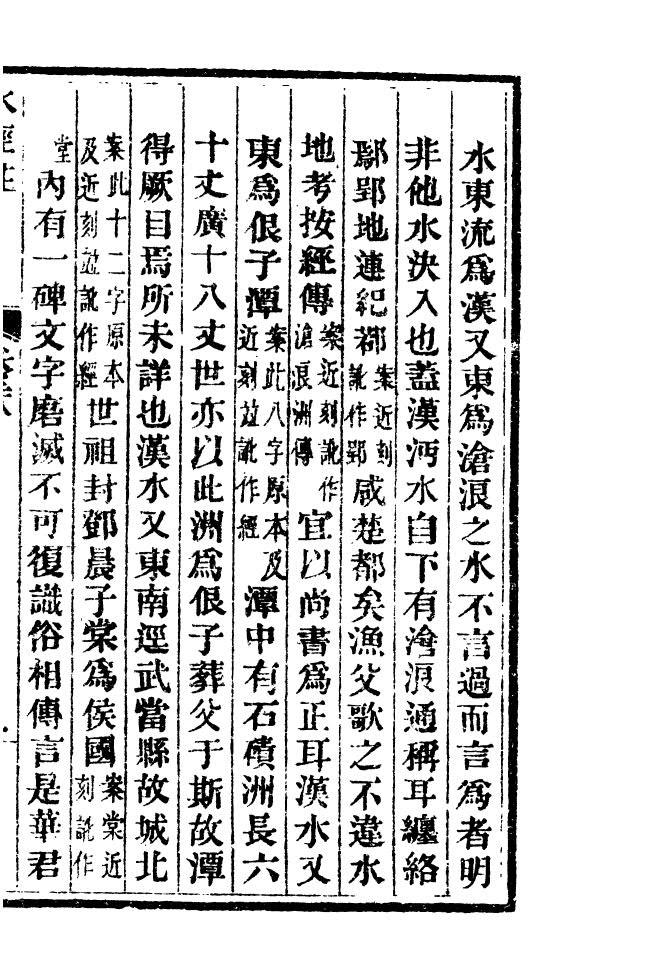 水東流爲漢又東爲滄浪之水不言過而言爲者明
非他水決入也蓋漢沔水自下有滄浪通稱耳纏絡
鄢郢地連紀鄀案近刻訛作郢咸楚都矣漁父歌之不違水
地考按經傳案近刻訛作滄浪洲傳宜以尚書爲正耳漢水又
東爲佷子潭案此八字原本及近刻竝訛作經潭中有石磧洲長六
十丈廣十八丈世亦以此洲爲佷子葬父于斯故潭
得厥目焉所未詳也漢水又東南逕武當縣故城北
案此十二字原本及近刻竝訛作經世祖封鄧晨子棠爲侯國案棠近刻訛作
堂內有一碑文字磨滅不可復識俗相傳言是華君
水經注